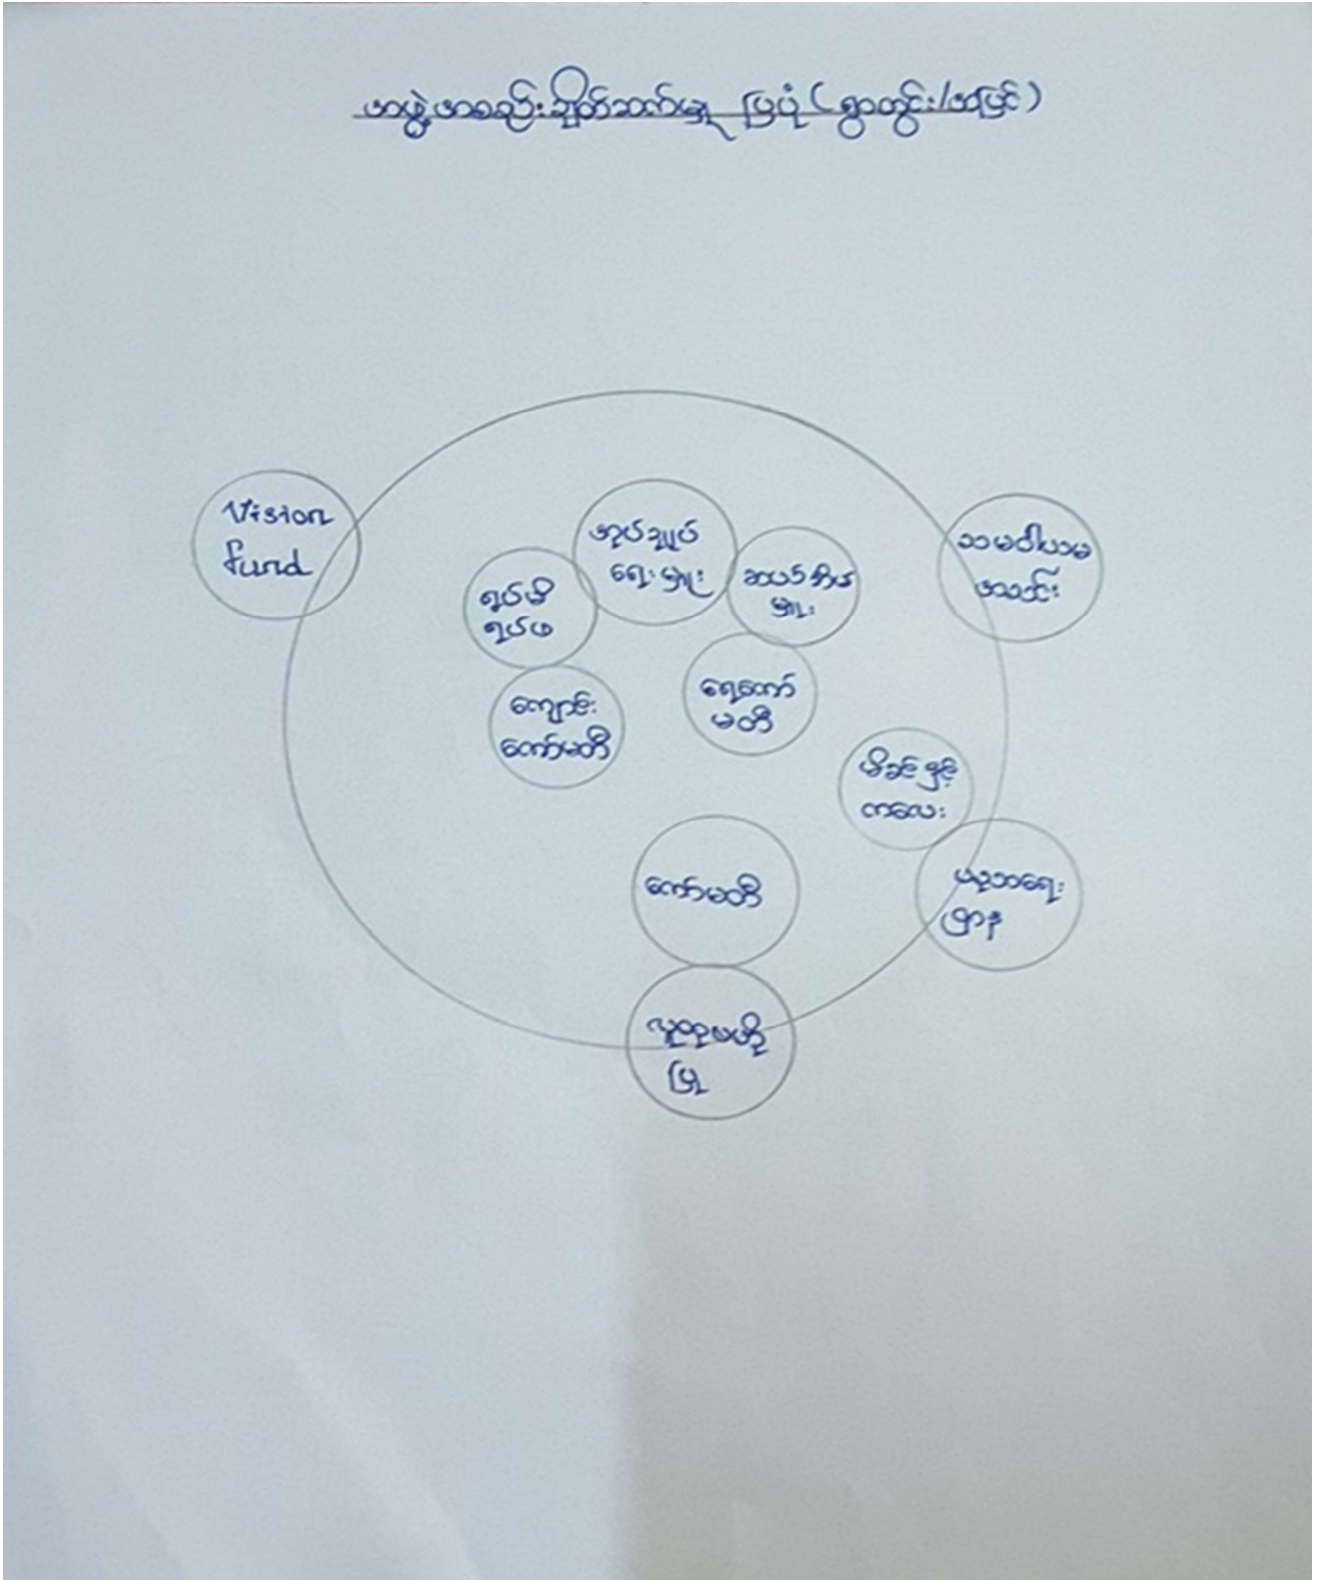 အဖွဲ့အစည်းချိတ်ဆက်မှု ပြပုံ (ရွာတွင်း/အပြင်)
Vision
fund
အုပ်ချုပ်
ရေးမှူး
ဆယ်အိမ်
မှူး
သမဝါယမ
အသင်း
ရပ်မိ
ရပ်ဖ
ကျောင်း
ကော်မတီ
ရေကော်
မတီ
မိခင်နှင့်
ကလေး
ကော်မတီ
ဌာန
လူထုဗဟို
ပြု